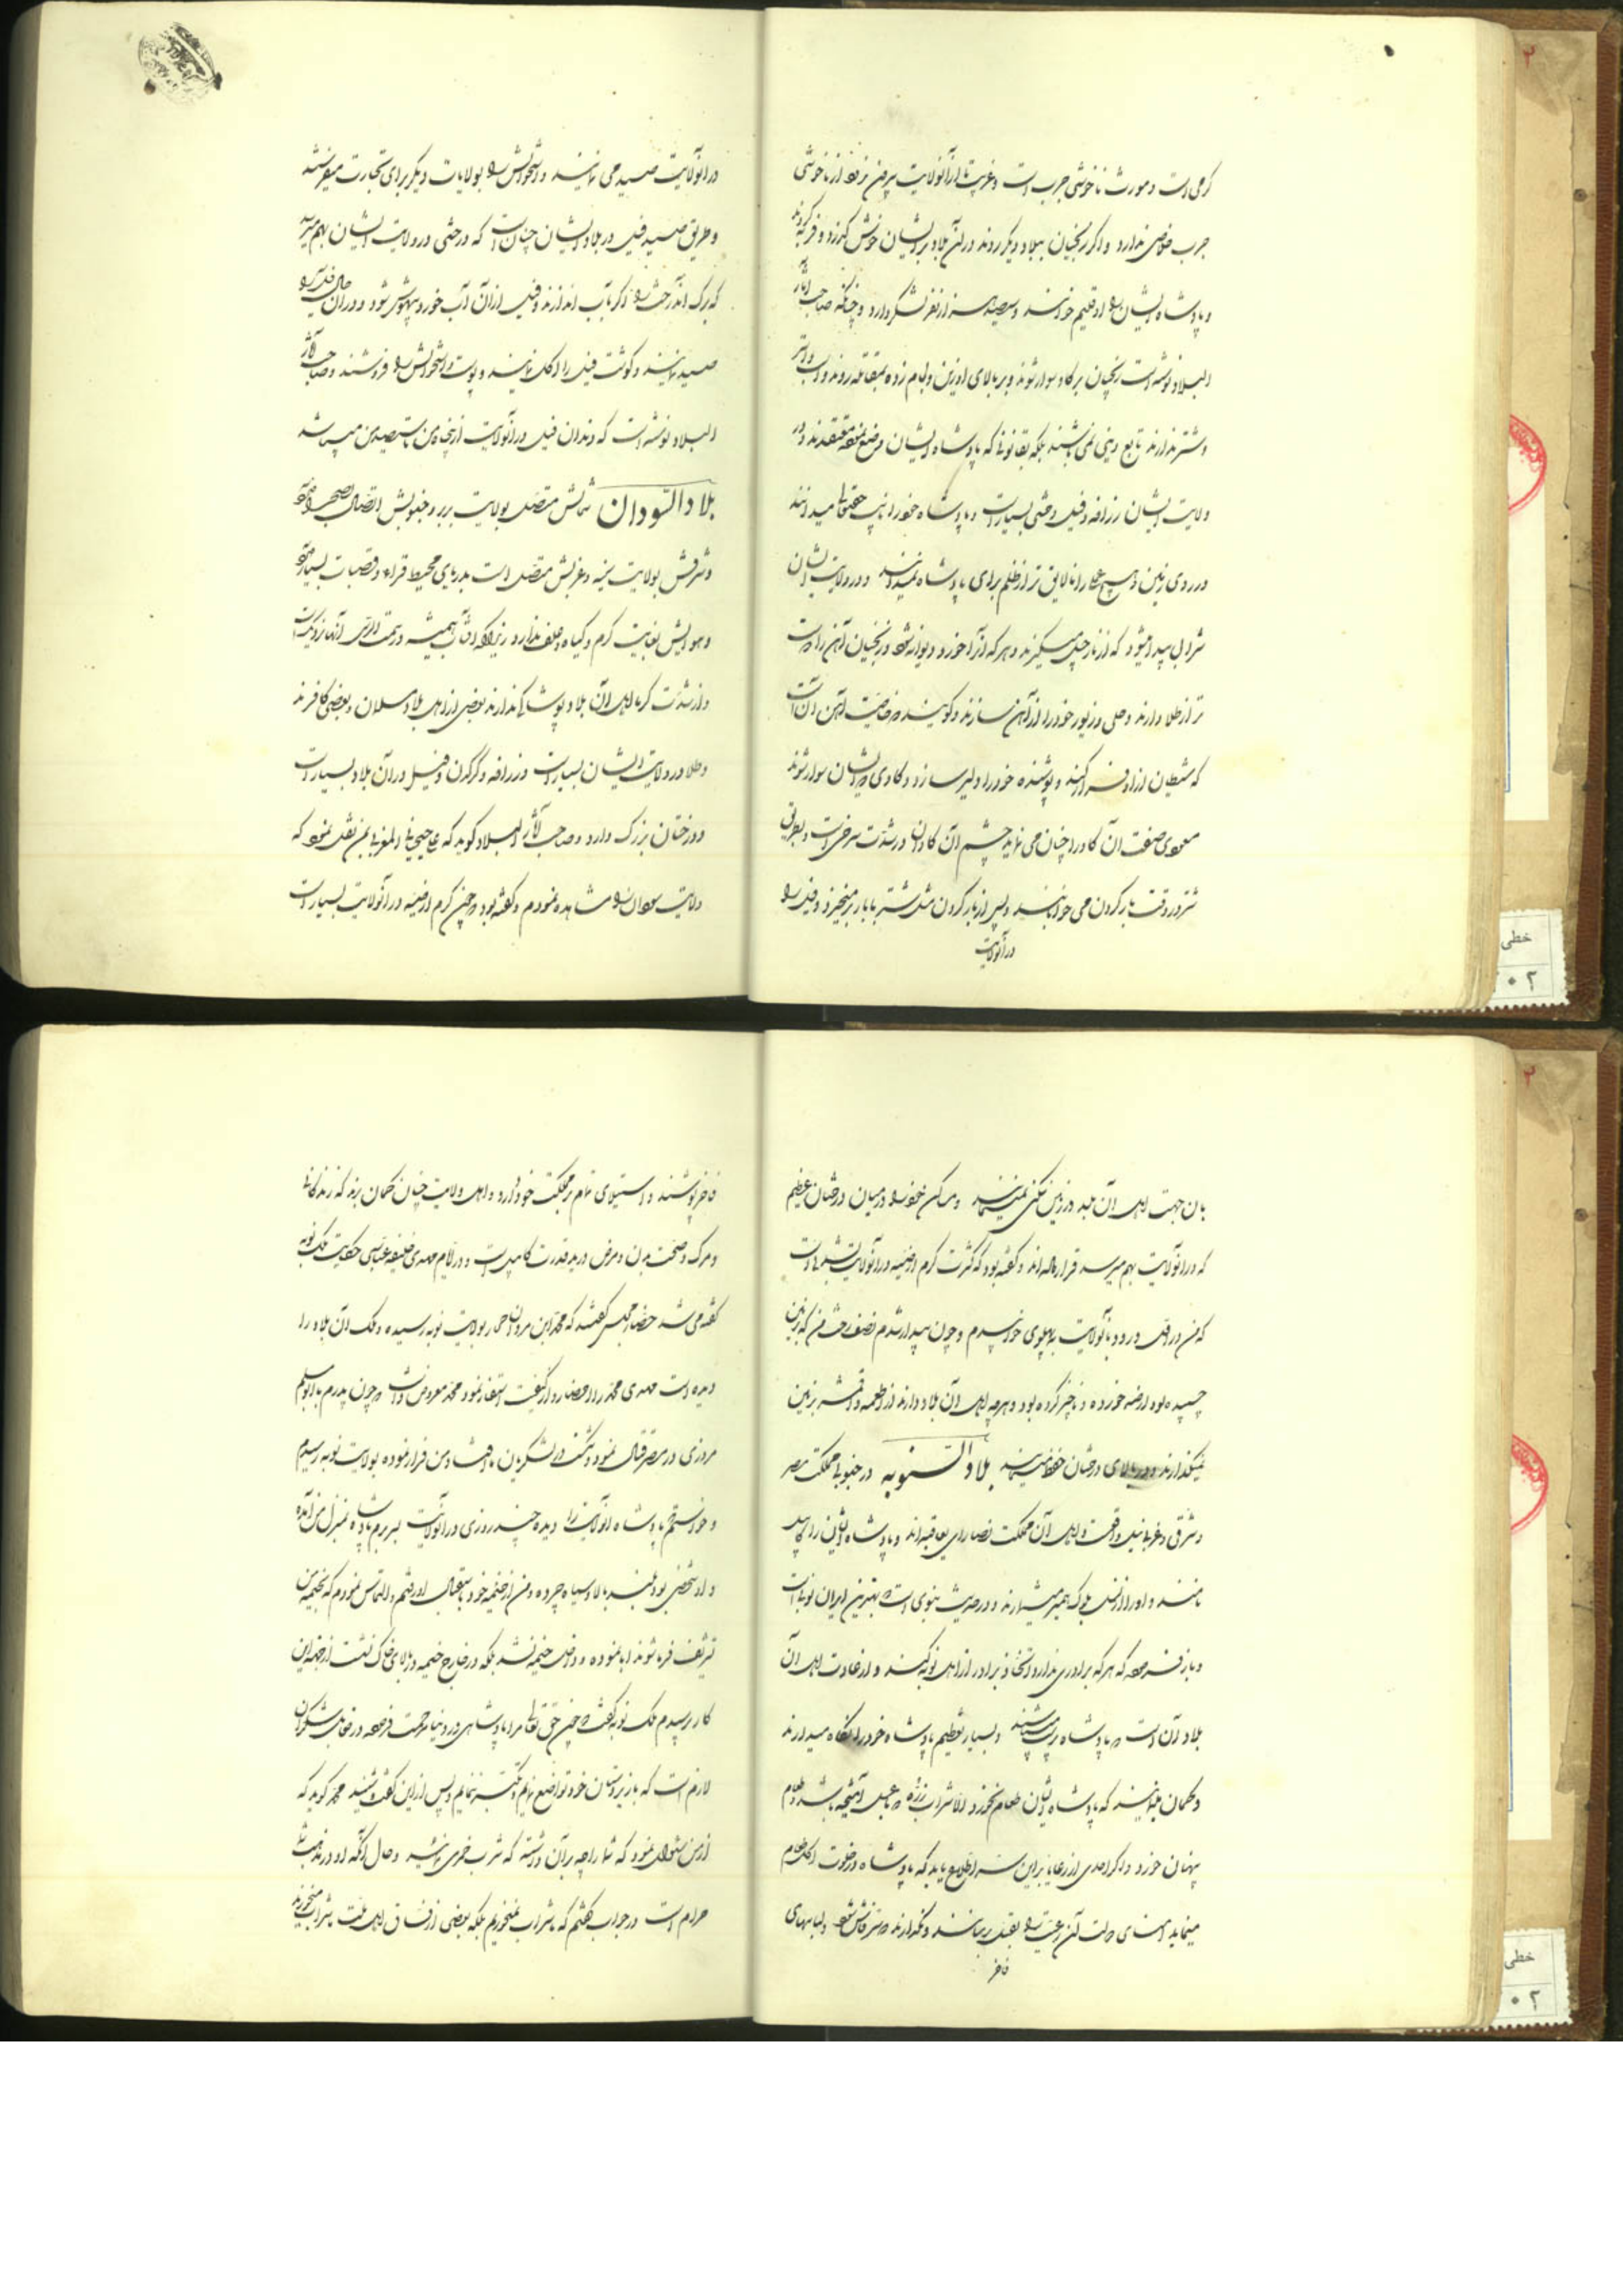 کرمی است و مورث ناخوشی جرب است و غریب تا از آنولایت بیرون نرود از ناخوشی
جرب خلاصی ندارد و اگر زنجیان ببلاد دیگر روند در آن بلاد بر ایشان خوش گذرد و فربه گردند
و پادشاه ایشان را اوقلیم خوانند و سیصد هزار نفر لشکر دارد و چنانکه صاحب آثار
البلاد نوشته است زنجیان بر گاو سوار شوند و بر بالای او زین و لجام زده بمقاتله روند و اسب و استر
و شتر ندارند تابع دینی نمی باشند بلکه بقانونی که پادشاه ایشان وضع نموده معتقدند و در
ولایت ایشان زرافه و فیل وحشی بسیار است و پادشاه خود را نایب حقتعالی میدانند
در روی زمین و هیچ عمل را نالایق تر از ظلم برای پادشاه نمیدانند و در ولایت ایشان
شرابی پیدا میشود که از نارجیل میگیرند و هر که از آن خورد دیوانه شود و زنجیان آهن را دوست
تر از طلا دارند و حلی و زیور خود را از آهن سازند و گویند که خاصیت آهن آن است
که شیطان از او فرار کند و پوشنده خود را دلیر سازد و گاوی که ایشان سوار شوند
مسعودی صفت آن گاو را چنان می نماید چشم آن گاوان در شدت سرخی است و بطریق
شتر در وقت بار کردن می خوابانند و پس از بار کردن مثل شتر با بار برمیخیزد و فیل را
در آنولایت
در آنولایت صید می نمایند و استخوانش را بولایات دیگر برای تجارت میفرستند
و طریق صید فیل در بلاد ایشان چنان است که درختی در ولایت ایشان بهم میرسد
که برگ آندرخت را اگر بآب اندازند و فیل از آن آب خورد بیهوش شود و در آن حال فیل را
صید نمایند و گوشت فیل را اکل نمایند و پوست و استخوانش را فروشند و صاحب آثار
البلاد نوشته است که دندان فیل در آنولایت از پنجاه من تا سیصد من میباشد
بلاد السودان شمالش متصل بولایت بربر و جنوبش اتصال بصحرا دارد
و شرقش بولایت حبشه و غربش متصل است بدریای محیط قراء و قصبات بسیار دارد
و هوایش بغایت گرم و گیاه و علف ندارد زیراکه آفتاب همیشه در سمت الرأس آنها نزدیکست
و از شدت گرما اهل آن بلاد پوشاک ندارند بعضی از اهل بلاد مسلمان و بعضی کافرند
و طلا در ولایت ایشان بسیار است و زرافه و کرگدن و فیل در آن بلاد بسیار است
و درختان بزرگ دارد و صاحب آثار البلاد گوید که علی جنحانی المغربی بمن نقل نمود که
ولایت سودان را مشاهده نمودم و گفته بود که چون کرم ارضیه در آنولایت بسیار است
بان جهت اهل آن بلد در زمین سکنی نمینمایند و مسکن خود را در میان درختان عظیم
که در آنولایت بهم میرسد قرار داده اند و گفته بود که کثرت کرم ارضیه در آنولایت بشدتی است
که من در اول ورود بآنولایت به پهلوی خوابیدم و چون بیدار شدم نصف رخت من که بزمین
چسبیده بود ارضه خورده و ناچیز کرده بود و هر چه اهل آن بلاد دارند از اطعمه و اقمشه بزمین
نمیگذارند و در بالای درختان حفظ مینمایند بلاد النوبه در جنوبی مملکت مصر
و شرقی و غربی نیل واقعست و اهل آن مملکت نصارای یعاقبه اند و پادشاه ایشان را کابیل
نامند و او را از نسل ملوک حمیر میشمارند و در حدیث نبوی است که بهترین اسیران نوبی است
و باز فرموده که هر که برادری ندارد اتخاذ برادر از اهل نوبه کند و از عادت اهل آن
بلاد آن است که پادشاه پرست میباشند و بسیار تعظیم پادشاه خود را نگاه میدارند
و گمان مینمایند که پادشاه ایشان طعام نخورد الا شراب ذرّه که با عسل آمیخته باشد و طعام
پنهان خورد و اگر احدی از رعایا بر این سر اطلاع یابد که پادشاه در خلوت اکل طعام
مینماید امنای دولت آن رعیت را بقتل رسانند و نگذارند که سر فاش شود و لباسهای
فاخر
فاخر پوشند و استیلای تام بر مملکت خود دارد و اهل ولایت چنان گمان برند که زندگانی
و مرگ و صحت بدن و مرض در ید قدرت کابیل است و در ایام مهدی خلیفه عباسی حکایت ملک نوبه
گفته می شد حضار مجلس گفتند که محمد ابن مروان حمار بولایت نوبه رسیده و ملک آن بلاد را
دیده است مهدی محمد را احضار و از کیفیت استفسار نمود محمد معروض داشت که چون پدرم با ابو مسلم
مروزی در مصر قتال نمود و شکست در لشکریان ما افتاد من فرار نموده بولایت نوبه رسیدم
و خواستم پادشاه آنولایت را دیده چند روزی در آنولایت بسر برم پادشاه بمنزل من آمده
و او شخصی بود بلند بالا و سیاه چرده و من از خیمه خود باستقبال او رفتم و التماس نمودم که بخیمه من
تشریف فرما شوند ابا نموده و داخل خیمه نشد بلکه در خارج خیمه و بالای خاک نشست از جهة این
کار پرسیدم ملک نوبه گفت که چون حق تعالی مرا پادشاهی در دنیا مرحمت فرموده در مقابل شکر آن
لازم است که با زیردستان خود تواضع نمایم و تکبر ننمایم و پس از این گفت و شنید محمد گوید که
از من سئوال نمود که شما را چه بر آن داشته که شرب خمر می نمائید و حال آنکه او در مذهب شما
حرام است در جواب گفتم که ما شراب نمیخوریم بلکه بعضی از فساق اهل ملت ما شراب میخورند
خطی
۲
۰۲
خطی
۲
۰۲